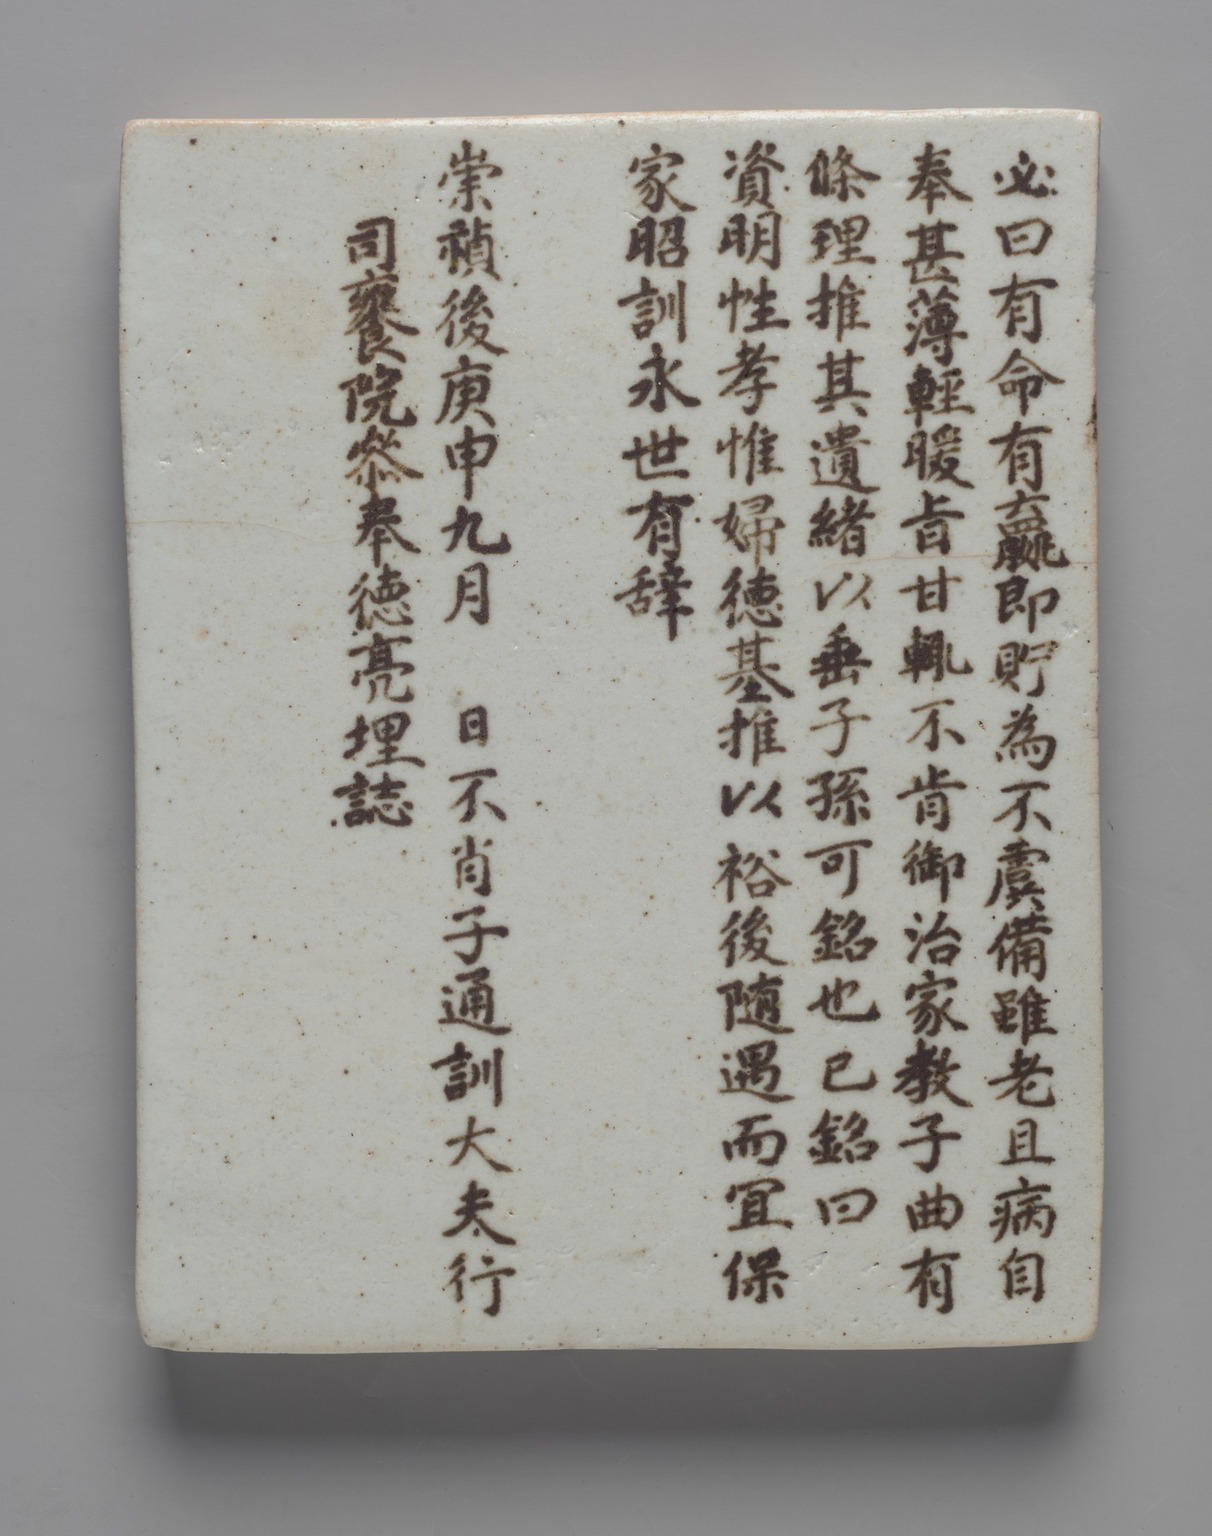 必曰有命有贏即貯為不虞備雖老且病自
奉甚薄輕暖旨甘輒不肯御治家教子曲有
條理推其遺緒以垂子孫可銘也已銘曰
資明性孝惟婦德基推以裕後隨遇而宜保
家昭訓永世有辭
崇禎後庚申九月 日不肖子通訓大夫行
司饔院叅奉德亮埋誌